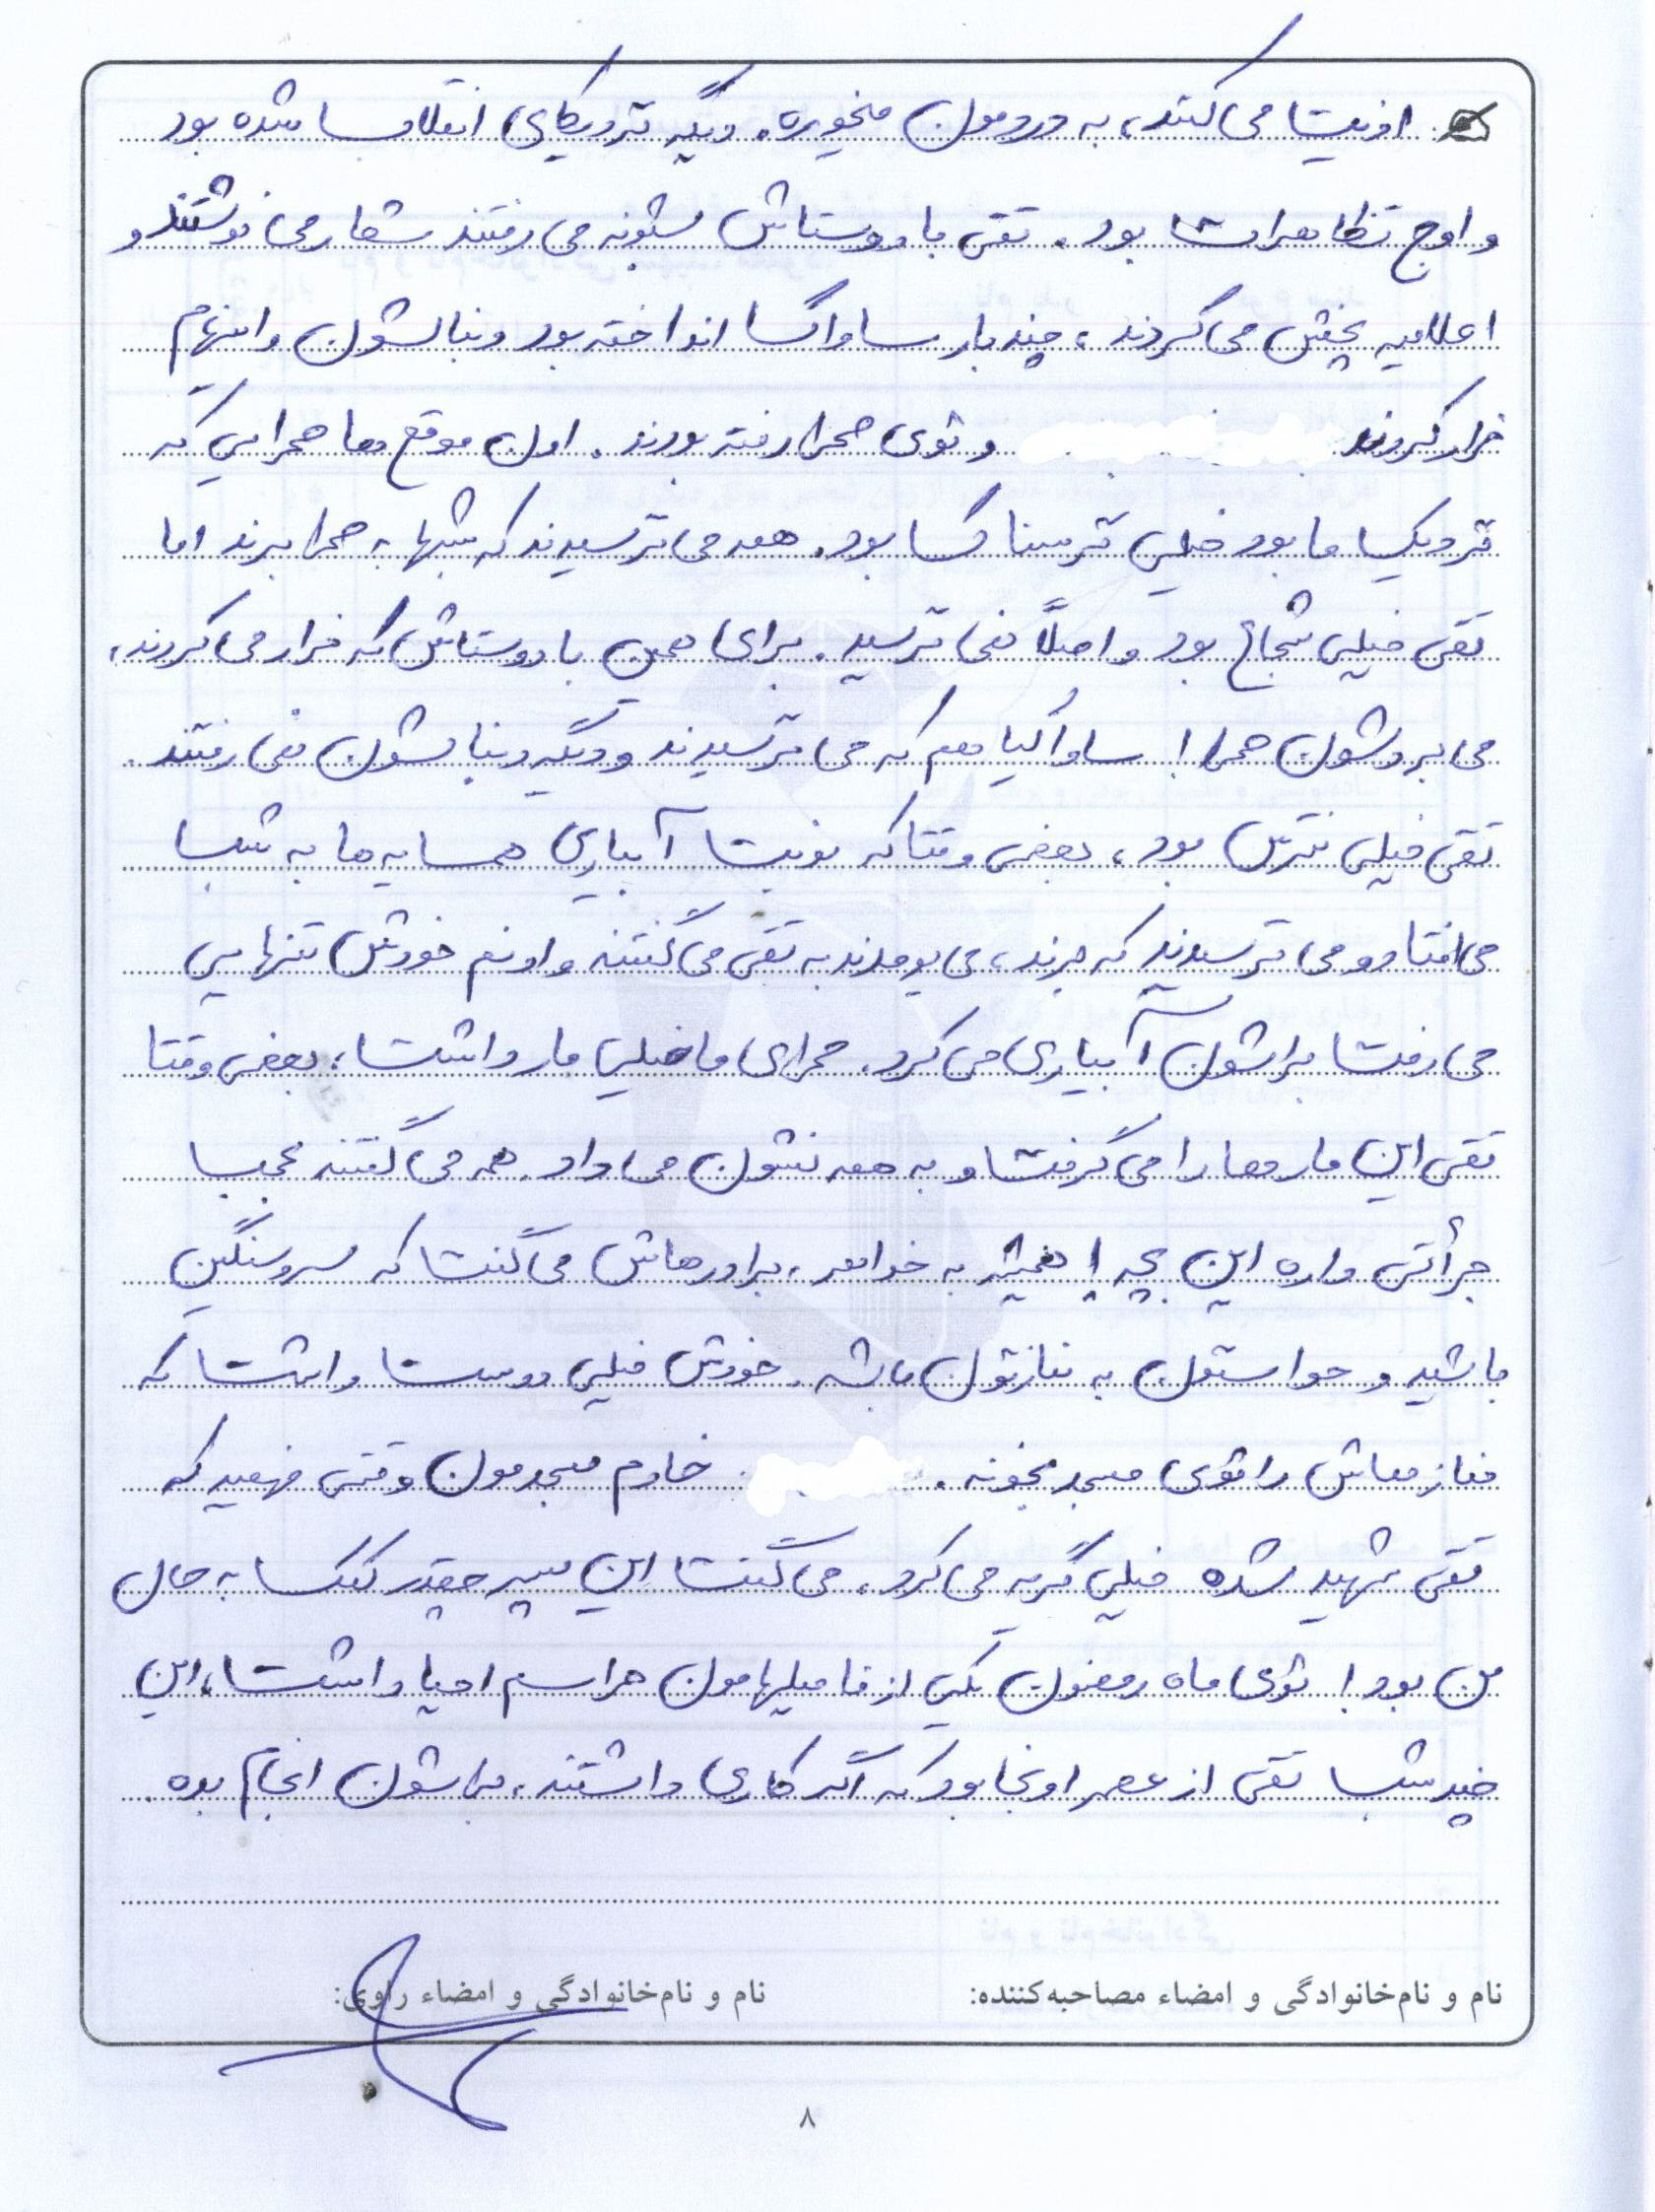 اذیت می‌کنند، به دردمون میخوره. دیگه نزدیکای انقلاب شده بود
و اوج تظاهرات بود. تقی با دوستاش شبونه می‌رفتند شعار می‌نوشتند و
اعلامیه پخش می‌کردند، چند بار ساواک انداخته بود دنبالشون و اینهام
فرار کردند و توی صحرا رفته بودند. اون موقع‌ها صحرایی که
نزدیک ما بود خیلی ترسناک بود. همه می‌ترسیدند که شبها به صحرا برند اما
تقی خیلی شجاع بود و اصلاً نمی‌ترسید. برای همین با دوستاش که فرار می‌کردند،
می‌بردشون صحرا! ساواکیا هم که می‌ترسیدند و دیگه دنبالشون نمی‌رفتند.
تقی خیلی نترس بود، بعضی وقتا که نوبت آبیاری همسایه‌ها به شب
می‌افتاد و می‌ترسیدند که برند، می‌یومدند به تقی می‌گفتند و اونم خودش تنهایی
می‌رفت براشون آبیاری می‌کرد. صحرای ما خیلی مار داشت، بعضی وقتا
تقی این مارها را می‌گرفت و به همه نشون می‌داد. همه می‌گفتند عجب
جرأتی داره این بچه! همیشه به خواهر، برادرهاش می‌گفت که سروسنگین
باشید و حواستون به نمازتون باشه. خودش خیلی دوست داشت که
نمازهاش را توی مسجد بخونه. خادم مسجدمون وقتی فهمید که
تقی شهید شده خیلی گریه می‌کرد. می‌گفت این پسر چقدر کمک به حال
من بود! توی ماه رمضون یکی از فامیلهامون مراسم احیا داشت، این
چند شب تقی از عصر اونجا بود که اگر کاری داشتند، براشون انجام بده.
نام و نام‌خانوادگی و امضاء مصاحبه‌کننده: نام و نام‌خانوادگی و امضاء راوی:
۸